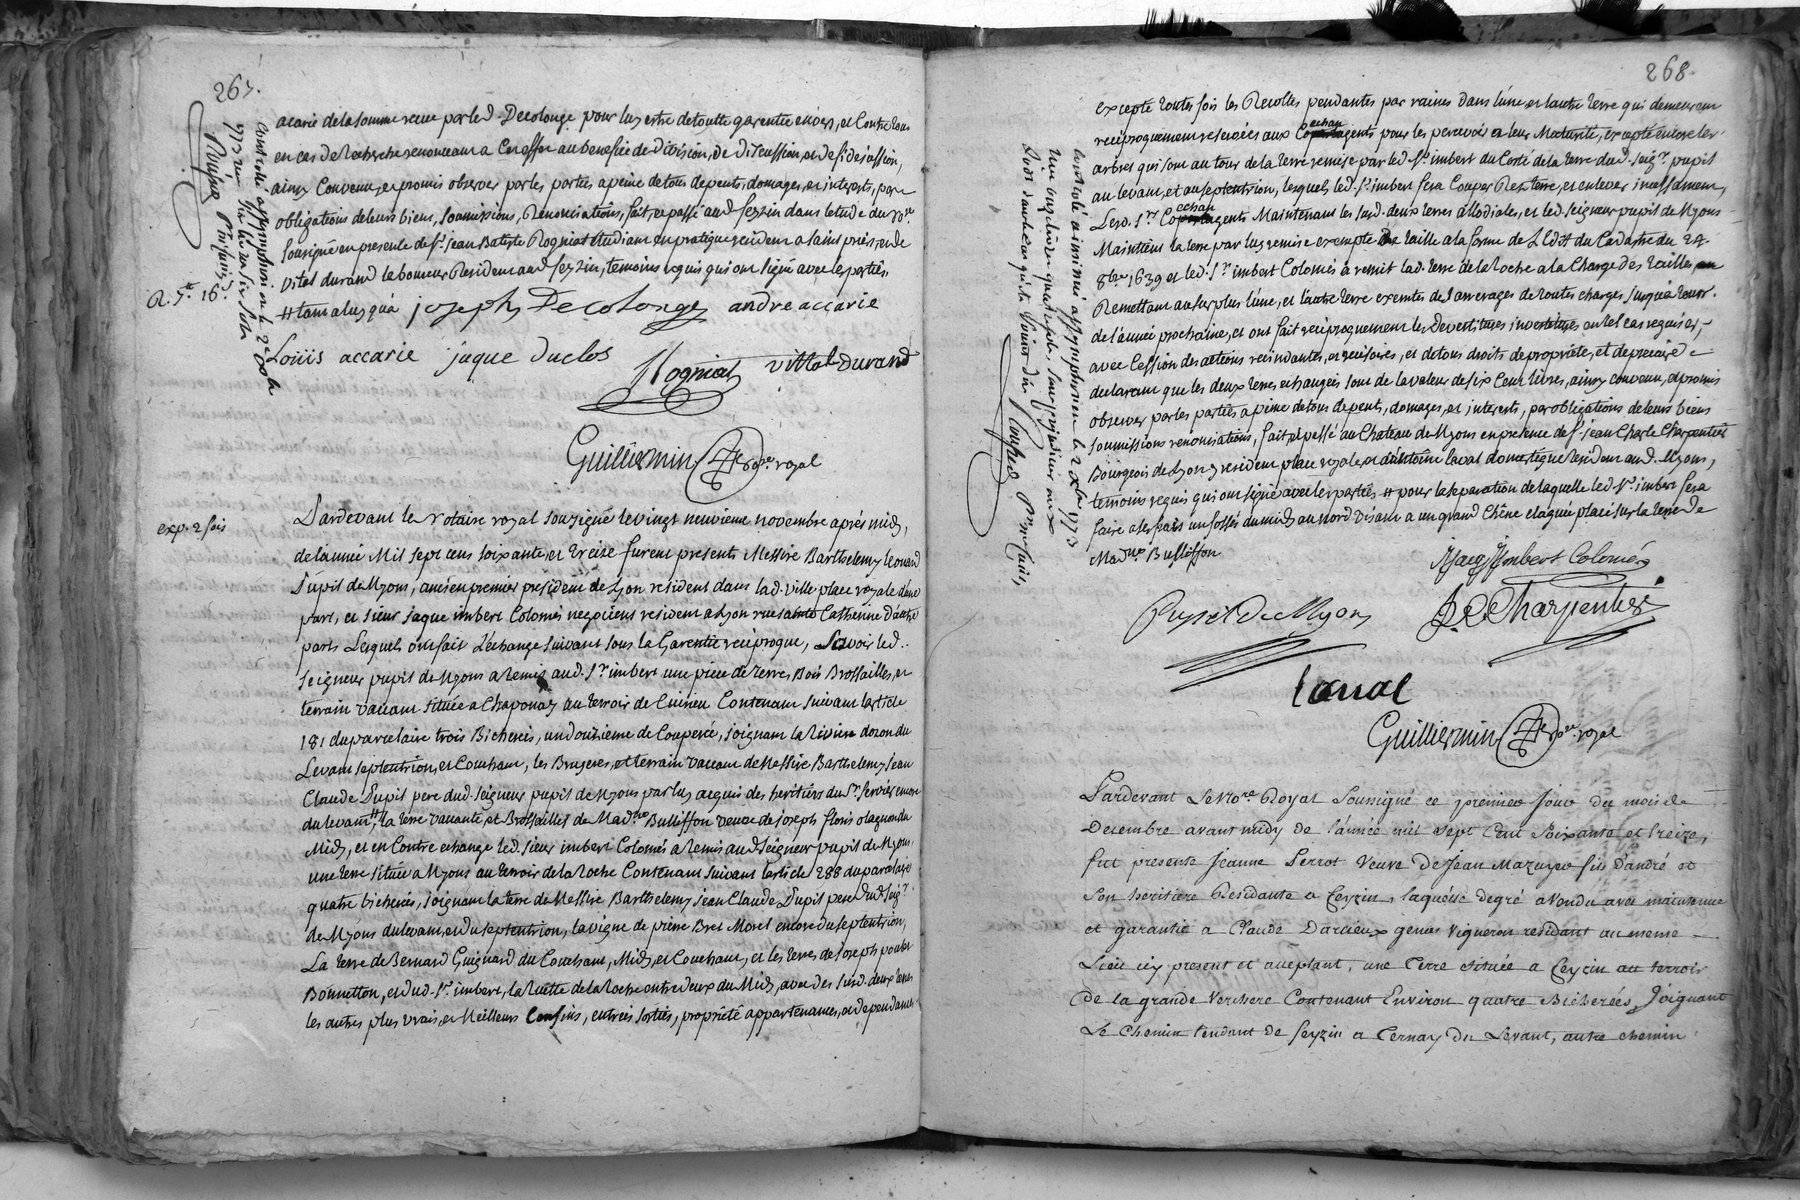 267.
acarie de la somme recue par led. Decolonge pour luy estre de toutte garentie envers, et contre tous
en cas de recherche renonceant a cet effet au benefice de division, de discussion, et de fidejussion,
ainsy convenu, et promis observer par les parties a peine de tous depents, domages, et interests, par
obligations de leurs biens, soumissions, renonciations, fait, et passé aud. feyzin dans letude du No.re
soussigné en presence de Sr. jean Batiste Rogniat étudiant en pratique resident a saint priest, et de
vital durand laboureur Resident aud. feyzin, temoins requis qui ont signé avec les parties
# tant a luy qu'a joseph Decolonge andre accarie
Louis accarie jaque duclos Rogniat vittal Durand
Guilliermin No.re royal
controlle a st symphorien le 2e xbre
1773 reçu
R. 5# 16s.
exp. 2 fois
Pardevant le notaire royal souzigné le vingt neuvieme novembre après midy,
de l'année Mil sept cens soixante, et treize furent presents Messire Barthelemy Leonard
Pupil de Myons, ancien premier president de Lyon resident dans lad. ville place royale d'une
part, et sieur jaque imbert Colomés negociens resident a Lyon rue sainte Catherine d'autre
part, Lesquels ont fait L'echange suivant sous la Garentie reciproque, Savoir led.
seigneur pupil de Myons a remis aud. Sr. imbert une piece de terre, Bois Brossailles, et
terrain vaccant située a Chaponay au terroir de Cuineu Contenant suivant l'article
181 du parcelaire trois Bicherés, un douzieme de Couperée, joignant la Riviere dozon du
Levant septentrion, et Couchant, les Bruyeres, et terrain vaccant de Messire Barthelemy jean
Claude Pupil pere dud. seigneur pupil de Myons par luy acquis des heritiers du Sr. Servier encore
du levant #, la terre vaccante, et Brossailles de Mad.me Bulliffon veuve de joseph floris olagnon du
Midy, et en Contre echange led. sieur imbert Colomés a remis aud. Seigneur pupil de Myons
une terre située a Myons au terroir de la Roche Contenant suivant l'article 288 du parcelaire
quatre bicherés, joignant la terre de Messire Barthelemy jean Claude Pupil pere dud. seigr.
de Myons du levant, et du septentrion, la vigne de pierre Bret Morel encore du septentrion,
La terre de Bernard Guignard du Couchant, Midy, et Couchant, et les terres de joseph
Bonnetton, et dud. Sr. imbert, la Ruette de la Roche entre deux du Midy, avec des susd. deux terres
les autres plus vrais, et Meilleurs Confins, entrées sorties, propriété appartenances, et dependances
268.
excepté toutes fois les Recoltes pendantes par racines dans l'une, et l'autre terre qui demeurent
reciproquement reservées aux Coechangents pour les percevoir a leur Maturité, excepté encore les
arbres qui sont au tour de la terre remise par led. Sr. imbert du Coté de la terre dud. seigr. pupil
au levant, et au septentrion, lesquels led. Sr. imbert fera Couper Rez terre, et enlever incessament,
Lesd. Srs. Coechangents Maintenant les susd. deux terres allodiales, et led. seigneur pupil de Myons
Maintient la terre par luy remise exempte de taille a la forme de L'Edit du Cadastre du 24.
8bre. 1639 et led. Sr. imbert Colomés a remit lad. terre de la Roche a la Charge des tailles
Remettant au surplus l'une, et l'autre terre exemtes de d'arrerages de toutes charges jusqu'a
de l'année prochaine, et ont fait reciproquement les Devestitures investitures en tel cas requis es,
avec Cession des actions rescindantes, et rescisoires, et de tous droits de proprieté, et de precaire
declarant que les deux terres echangées sont de la valeur de six Cent livres, ainsy convenu, et promis
observer par les parties a peine de tous depent, domages, et interests, par obligations de leurs biens
soumissions renonciations, fait, et passé au Chateau de Myons en presence de Sr. jean Charle Charpentier
Bourgeois de Lyon y resident place royale, et antoine laval domestique resident aud. Myons,
temoins requis qui ont signé avec les parties # pour la separation de laquelle led. Sr. imbert fera
faire a ses frais un fossé du midy au nord visant a un grand Chêne elagué placé sur la terre de
Mad.me Bulliffon
Jaq Imbert Colomés
Pupil de Myons J. C. Charpentier
Laval
Guilliermin No.re royal
controlé a st symphorien le 2 xbre 1773
Pardevant Le No.re Royal Soussigné ce premier jour du mois de
Decembre avant midy de l'année mil sept Cent Soixante et treize,
fut presente Jeanne Perrot Veuve de Jean Mazuyer fils d'andré et
Son heritiere Residante a feyzin, laquelle degré a vendu avec maintenue
et garantie a Claude Darcieux genies Vigneron residant au meme
Lieu icy present et acceptant, une terre située a feyzin au terroir
de la grande Verchere Contenant Environ quatre Bicherées, Joignant
Le Chemin tendant de feyzin a Ternay du Levant, autre chemin